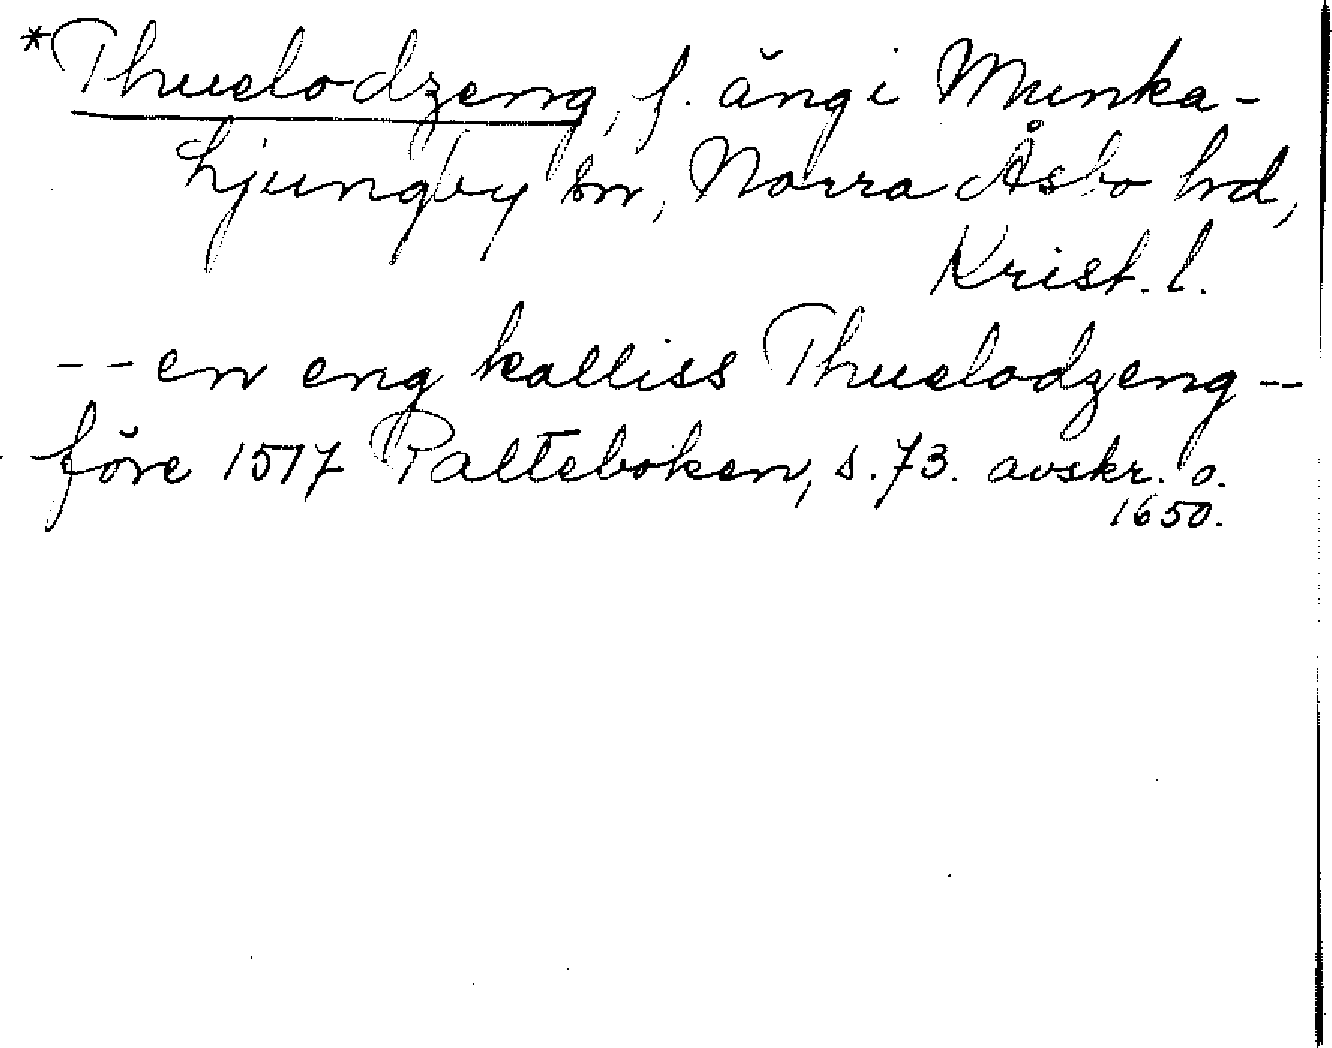 *Thuelodzeng, f. äng i Munka-
Ljungby sn, Norra Åsbo hd,
Krist. l.
-- en eng kalliss Thuelodzeng --
före 1517 Palteboken, s. 73. avskr. o.
1650.